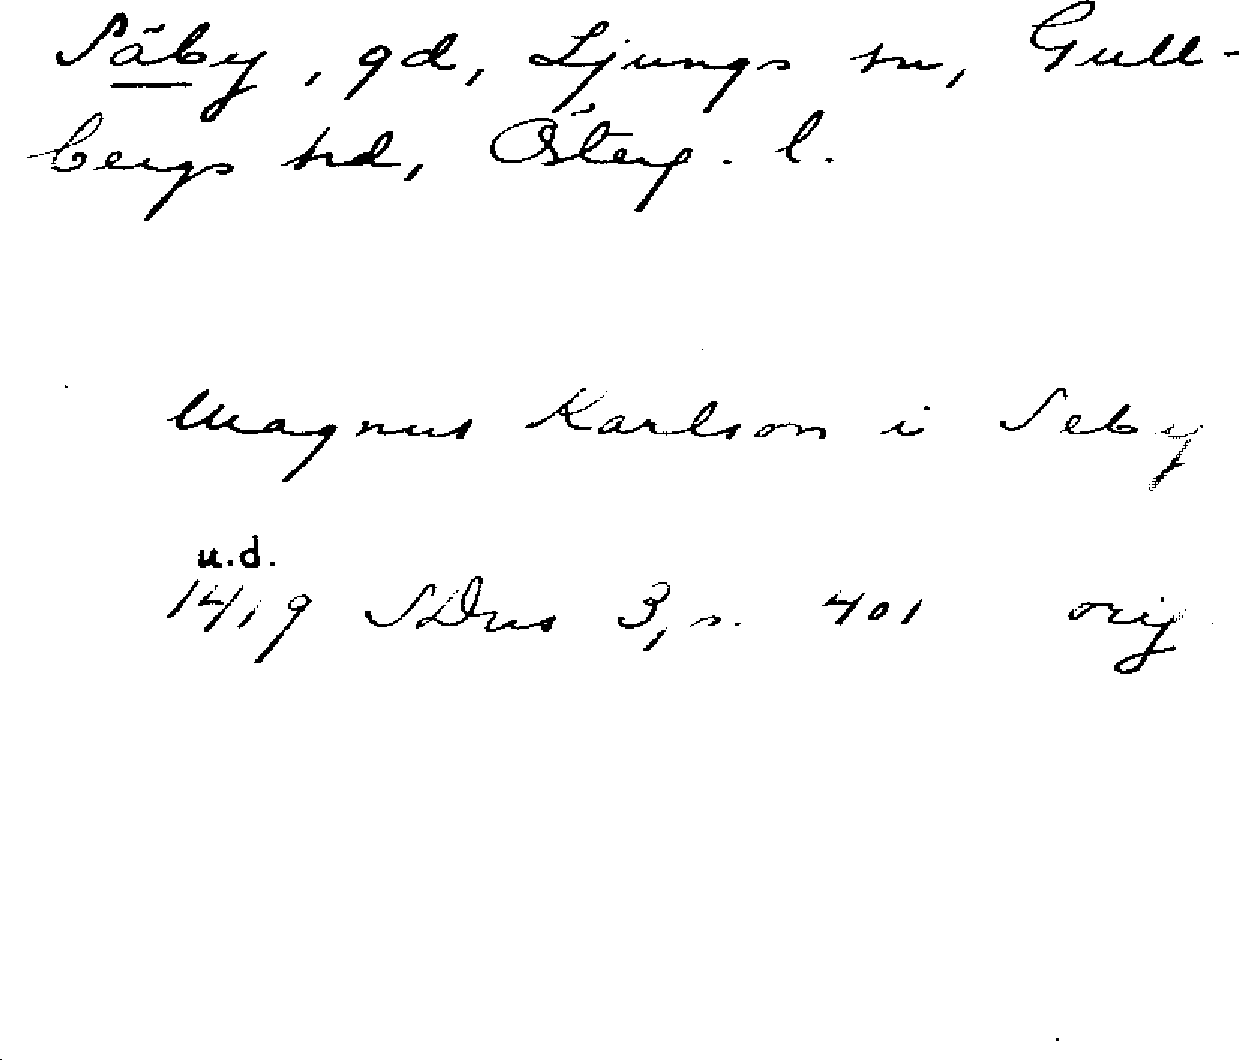 Säby, gd, Ljungs sn, Gull-
bergs hd, Österg. l.
Magnus Karlson i Seby
u.d.
1419 SDns 3, s. 401 orig